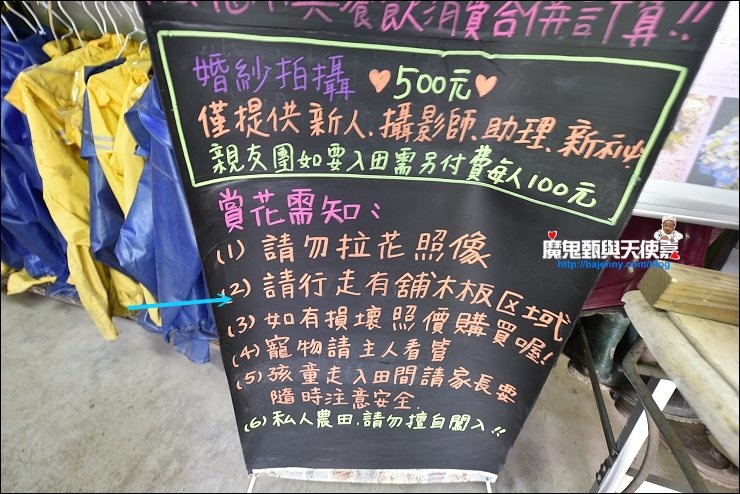 與餐飲消費合併計算!!
婚紗拍攝 ♥500元♥
僅提供新人、攝影師、助理、新祕
親友團如要入田需另付費每人100元
賞花需知:
(1) 請勿拉花照像
(2) 請行走有舖木板区域
(3) 如有損壞照價購買喔!
(4) 寵物請主人看管
(5) 孩童走入田間請家長要
隨時注意安全.
(6) 私人農田.請勿擅自闖入!!
魔鬼甄與天使嘉
http://bajenny.com/blog